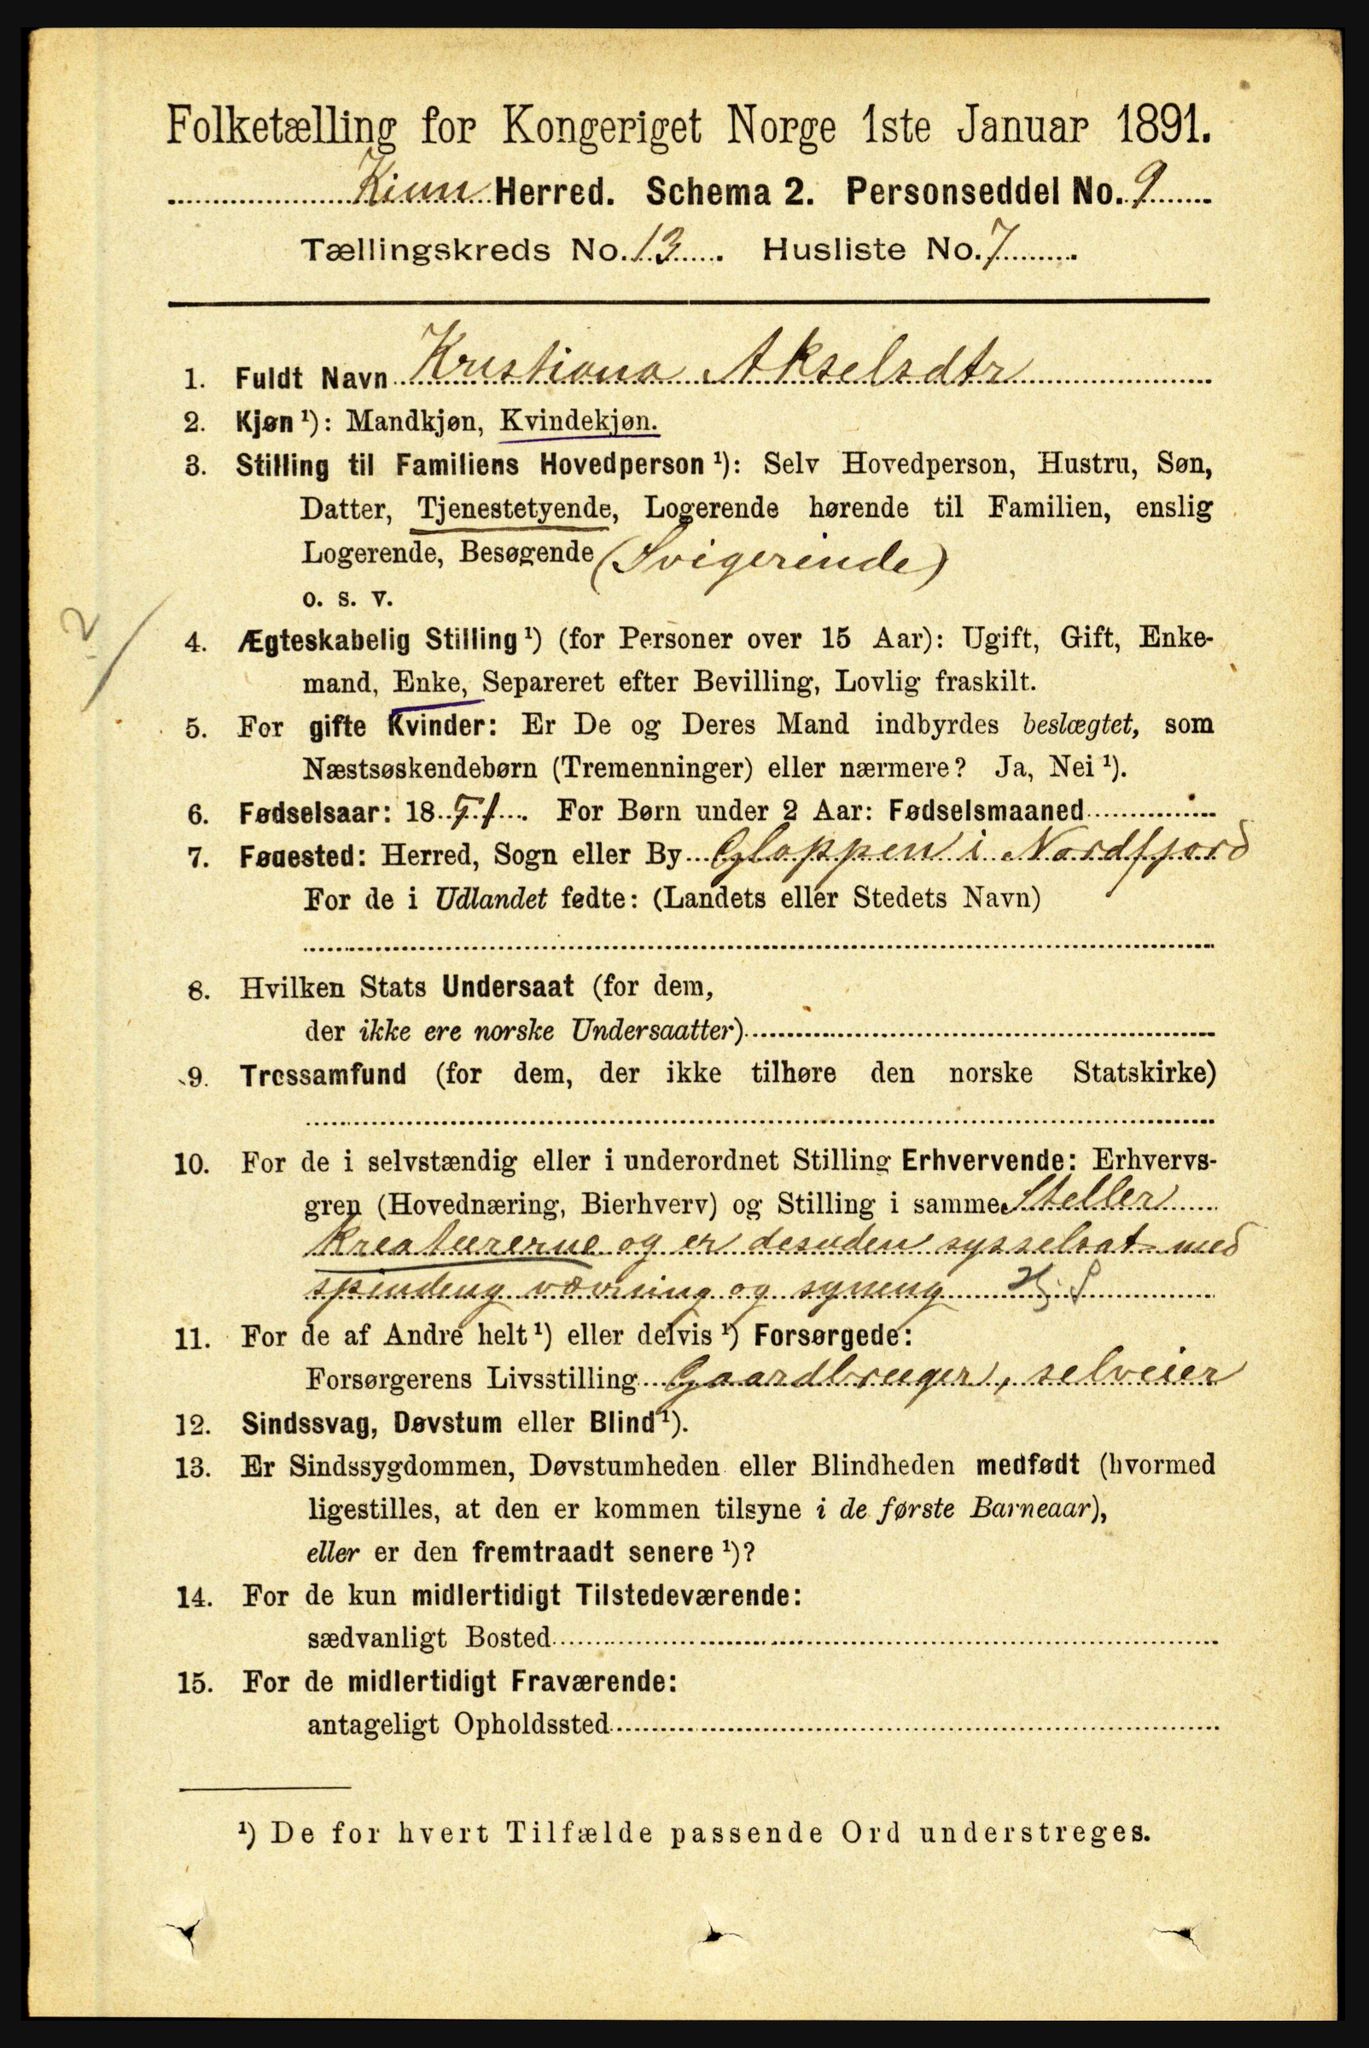 Folketælling for Kongeriget Norge 1ste Januar 1891.
Kinn Herred. Schema 2. Personseddel No. 9
Tællingskreds No. 13. Husliste No. 7
1. Fuldt Navn Kristiana Akselsdtr
2. Kjøn ¹): Mandkjøn, Kvindekjøn.
3. Stilling til Familiens Hovedperson ¹): Selv Hovedperson, Hustru, Søn,
Datter, Tjenestetyende, Logerende hørende til Familien, enslig
Logerende, Besøgende (Svigerinde)
o. s. v.
2
4. Ægteskabelig Stilling ¹) (for Personer over 15 Aar): Ugift, Gift, Enke-
mand, Enke, Separeret efter Bevilling, Lovlig fraskilt.
5. For gifte Kvinder: Er De og Deres Mand indbyrdes beslægtet, som
Næstsøskendebørn (Tremenninger) eller nærmere? Ja, Nei ¹).
6. Fødselsaar: 1851. For Børn under 2 Aar: Fødselsmaaned
7. Fødested: Herred, Sogn eller By Gloppen i Nordfjord
For de i Udlandet fødte: (Landets eller Stedets Navn)
8. Hvilken Stats Undersaat (for dem,
der ikke ere norske Undersaatter)
9. Trossamfund (for dem, der ikke tilhøre den norske Statskirke)
10. For de i selvstændig eller i underordnet Stilling Erhvervende: Erhvervs-
gren (Hovednæring, Bierhverv) og Stilling i samme Steller
kreaturerne og er desuden sysselsat med
spinding vævning og syning
11. For de af Andre helt ¹) eller delvis ¹) Forsørgede:
Forsørgerens Livsstilling Gaardbruger, selveier
12. Sindssvag, Døvstum eller Blind ¹).
13. Er Sindssygdommen, Døvstumheden eller Blindheden medfødt (hvormed
ligestilles, at den er kommen tilsyne i de første Barneaar),
eller er den fremtraadt senere ¹)?
14. For de kun midlertidigt Tilstedeværende:
sædvanligt Bosted
15. For de midlertidigt Fraværende:
antageligt Opholdssted
¹) De for hvert Tilfælde passende Ord understreges.